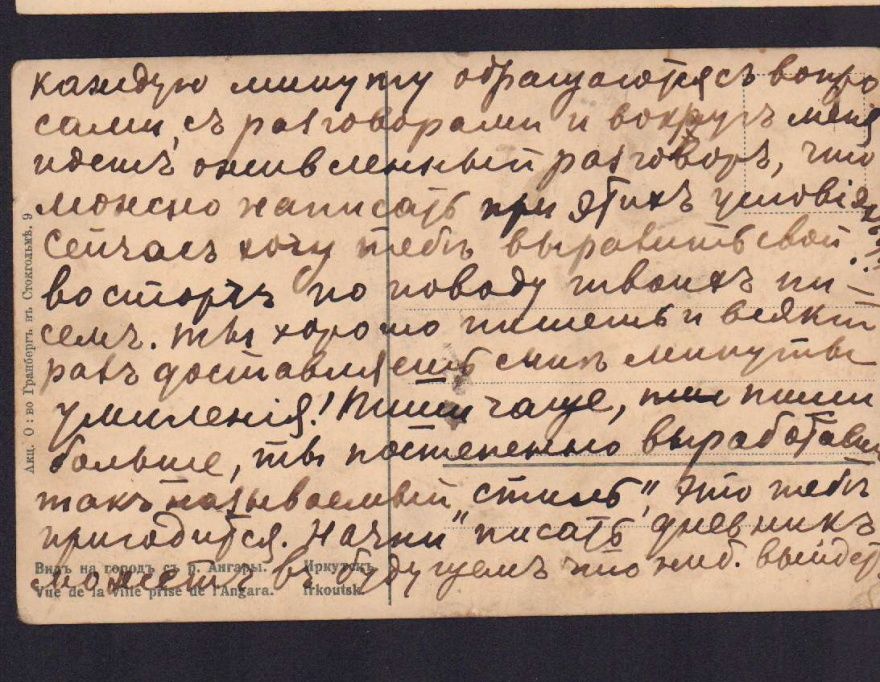 каждую минуту обращаются съ вопро
сами, съ разговорами и вокругъ меня
идетъ оживленный разговоръ, что
можно написать при этихъ условіяхъ??!
Сейчасъ хочу тебѣ выразить свой
восторгъ по поводу твоихъ пи–
семъ. Ты хорошо пишешь и всякій
разъ доставляешь мнѣ минуты
умиленія! Пиши чаще, пиши
больше, ты постепенно выработаешь
такъ называемый „стиль", это тебѣ
пригодится. Начни писать дневникъ
можетъ въ будущемъ что ниб. выйдетъ
Видъ на городъ съ р. Ангары. Иркутскъ.
Vue de la ville prise de l'Angara. Irkoutsk.
Акц. О: во Гранбергъ въ Стокгольмѣ. 9